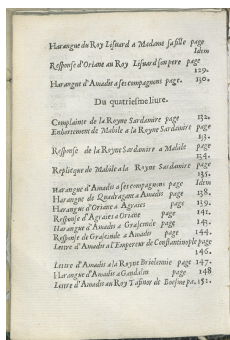 Harangue du Roy Lisuard a Madame sa fille page
Idem
Response d'Oriane au Roy Lisuard son pere page
129.
Harangue d'Amadis a ses compagnons page. 130.
Du quatriesme liure.
Complainte de la Royne Sardamire page 132.
Enhortement de Mabile a la Royne Sardamire page
133.
Response de la Royne Sardamire a Mabile page
134.
Replicque de Mabile a la Royne Sardamire page
135.
Harangue d'Amadis a ses compagnons page Idem
Harangue de Quadragant a Amadis page 138.
Harangue d'Oriane a Agraies page 139.
Response d'Agraies a Oriane page 141.
Harangue d'Amadis a Grasinde page 143.
Response de Grasinde a Amadis page 144.
Lettre d'Amadis a l'Empereur de Constantinople page
146.
Lettre d'Amadis a la Royne Briolanie page 147.
Harangue d'Amadis a Gandales page 148
Lettre d'Amadis au Roy Tafinor de Boesme pa. 152.